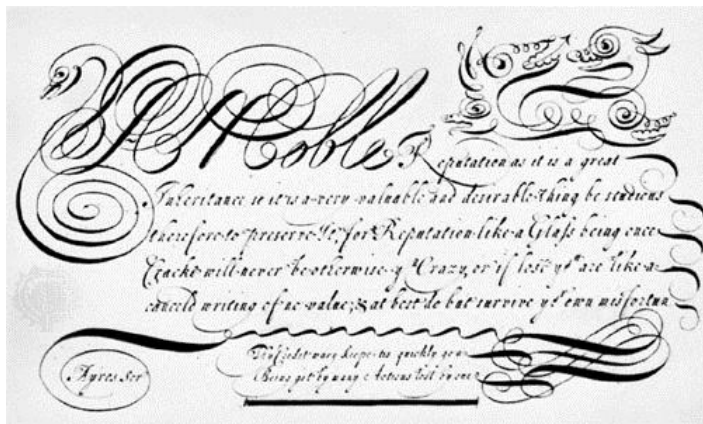 A Noble Reputation as it is a great
Inheritance so it is a very valuable and desirable thing be studious
therefore to preserve It, for Reputation like a Glass being once
Crackt will never be otherwise yn Crazy, or if lost you are like a
canceld writing of no value; & at best do but survive yor own misfortun
Thy Credit wary keepe, tis quickly gon
Being got by many Actions lost by one
Ayres Scr